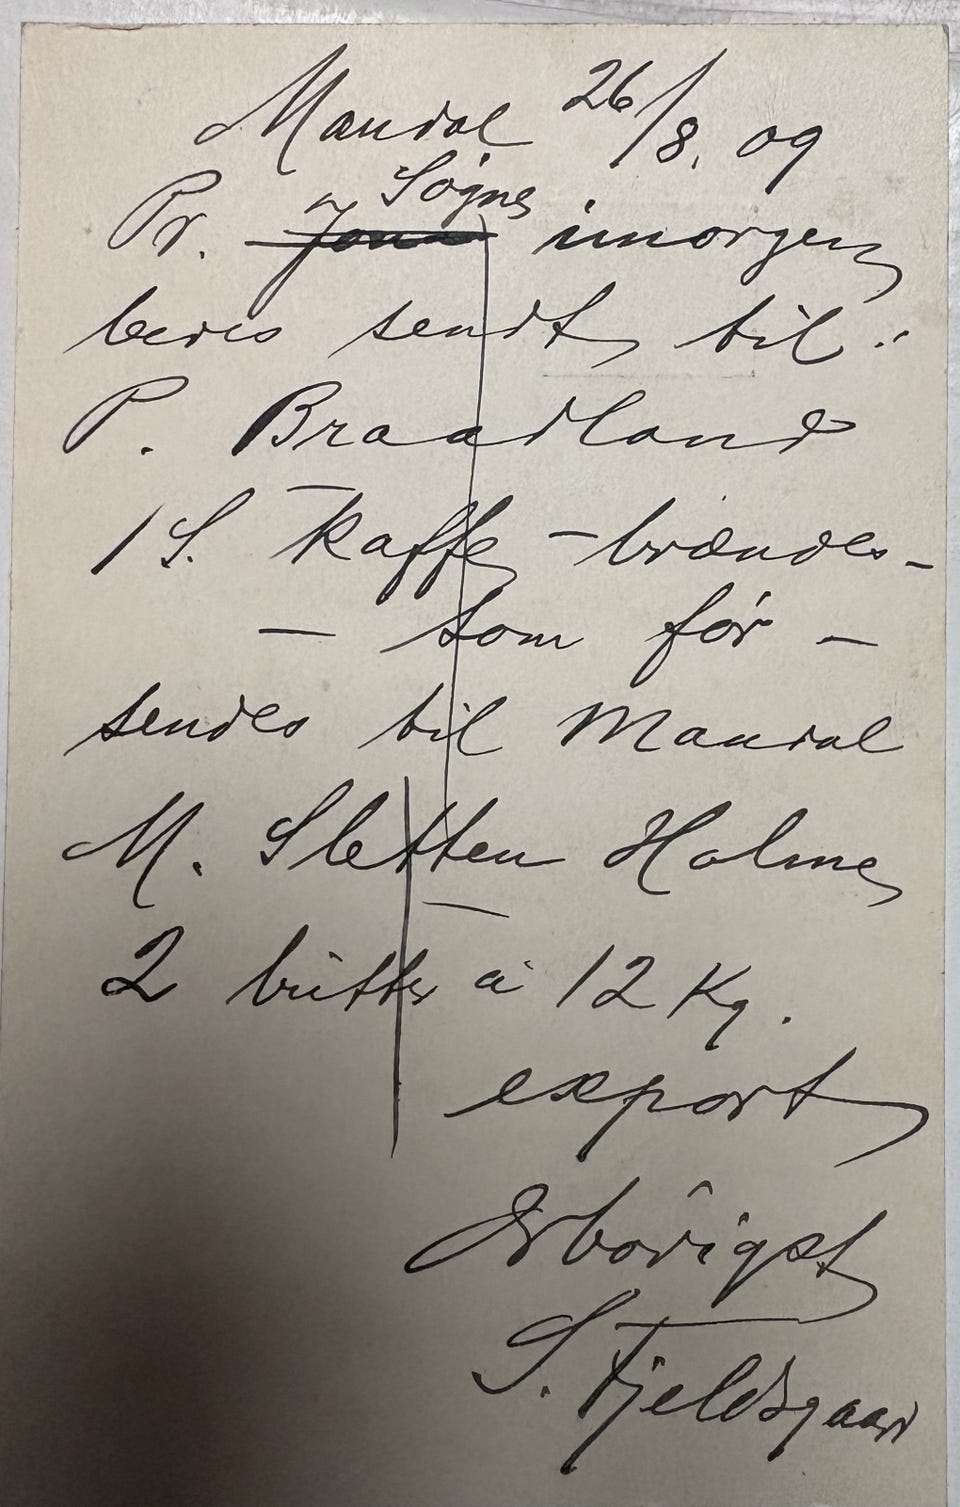 Mandal 26/8. 09
Søgne
Pr. imorgen
bedes sendt til:
P. Braadland
1 S. Kaffe - brændes -
- som før -
sendes til Mandal
M. Sletten Holme
2 bütter à 12 Kg.
export
Ærbødigst
S. Fjeldsgaard